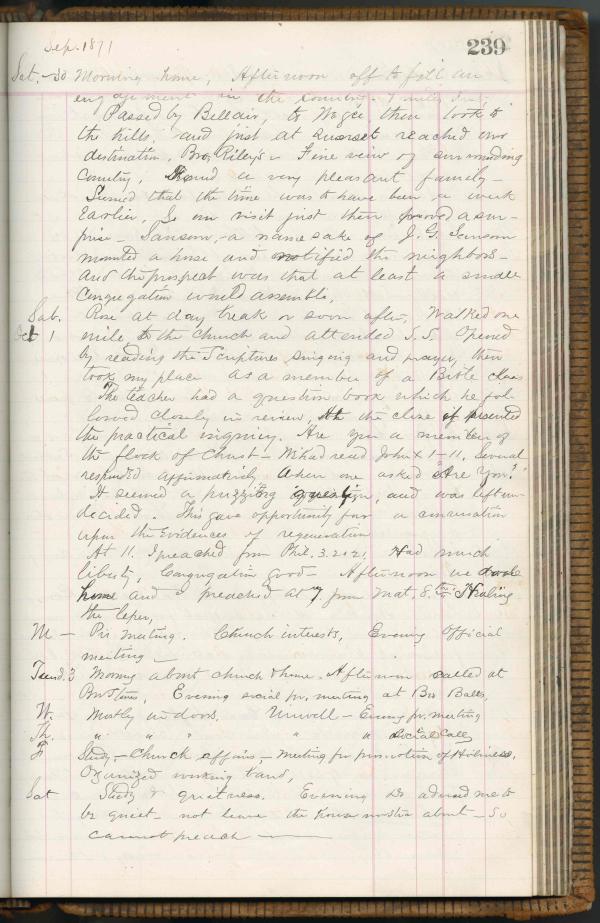 Sep. 1871
239
Sat. - 30 Morning home, Afternoon off to fill an
engagement in the country
Passed by Bellair, to McGee then took to
the hills, and just at sunset reached our
destination. Bro Riley's - Fine view of surrounding
country, Found a very pleasant family -
Seemed that the time was to have been a week
Earlier. So our visit just then proved a sur-
prise - Sansom, - a name sake of J. G. Sansom
mounted a horse and notified the neighbors -
And the prospect was that at least a small
Congregation would assemble.
Sab. Rose at day break or soon after, Walked one
Oct 1 mile to the church and attended S.S. Opened
by reading the Scriptures, singing and prayer, then
took my place as a member of a Bible class
The teacher had a question book which he fol-
lowed closely in review, At the close if presented
the practical inquiry. Are you a member of
the flock of Christ - We had read John X 1-11. Several
responded affirmatively when one asked "Are You?"
It seemed a puzzling question, and was left un-
decided. This gave opportunity for a conversation
upon the Evidences of regeneration
At 11. I preached from Phil. 3. 20 21. Had much
liberty, Congregation good - Afternoon we
home and I preached at 7 from Mat. 8. the Healing
the leper,
M - Prs meeting. Church interests, Evening Official
meeting -
Tuesd. 3 Morning about church & home. Afternoon called at
Evening social pr. meeting at Bro Balls,
W. Mostly in doors. Unwell - Evening pr. meeting
Th. " " " " " Social Calls
F Study, - Church affairs, - Meeting for promotion of Holiness,
Organized working band,
Sat Study & quietness. Evening Dr advised me to
be quiet - not leave the house nor stir about - So
cannot preach -